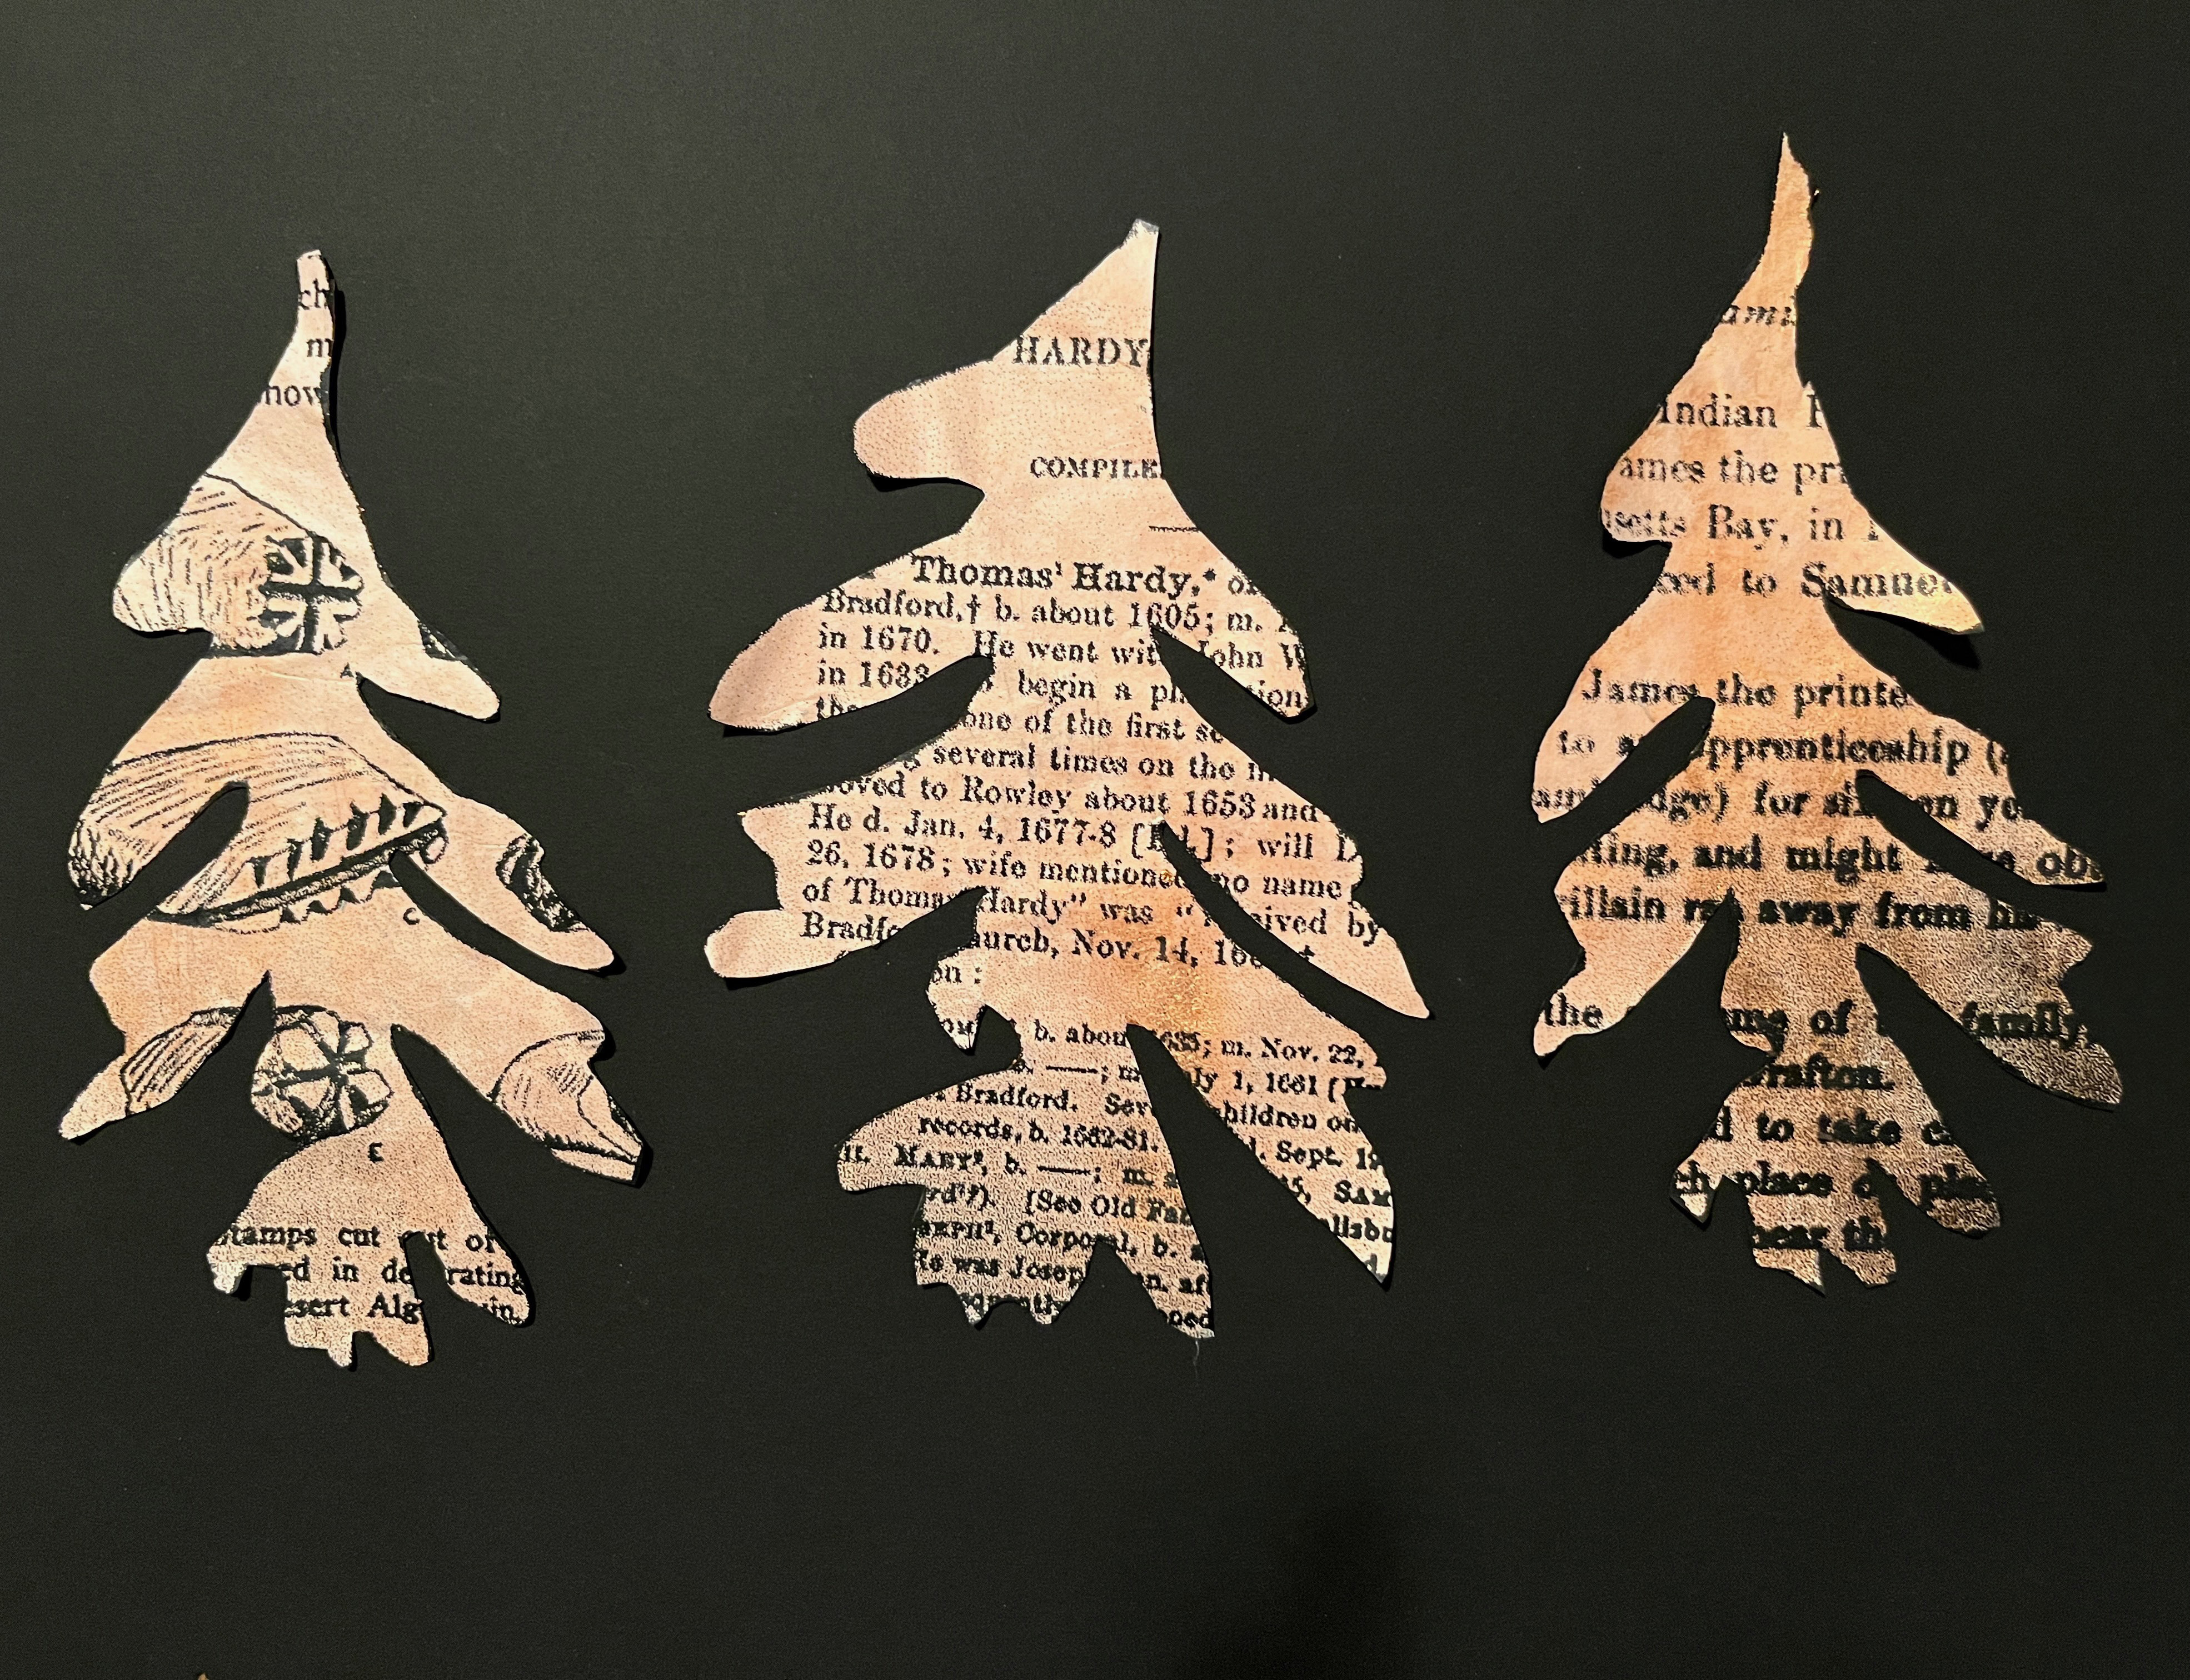 ch
m
now
A
C
E
tamps cut out of
ed in de rating
sert Alg uin,
HARDY
COMPILE
Thomas¹ Hardy,* of
Bradford,† b. about 1605; m.
in 1670. He went with John W
in 1633 begin a pl tion
the one of the first se
several times on the
oved to Rowley about 1653 and
He d. Jan. 4, 1677-8 [ ]; will
26, 1678; wife mentioned no name
of Thomas Hardy" was " ived by
Bradfo hurch, Nov. 14, 16
on:
b. about 1635; m. Nov. 22,
——; m ly 1, 1661
Bradford. Sev children on
records, b. 1662-81. Sept. 1
ii. MARY², b. ——; m. 5, SAM
rd"). [See Old Fam llsbu
EPH², Corporal, b.
He was Josep n. af
oed
ami
Indian
ames the pri
setts Bay, in
ced to Samue
James the printe
to a apprenticeship (
am dge) for si en ye
ting, and might ob
illain ra away from his
the me of family,
rafton.
d to take c
ch place or pla
near th